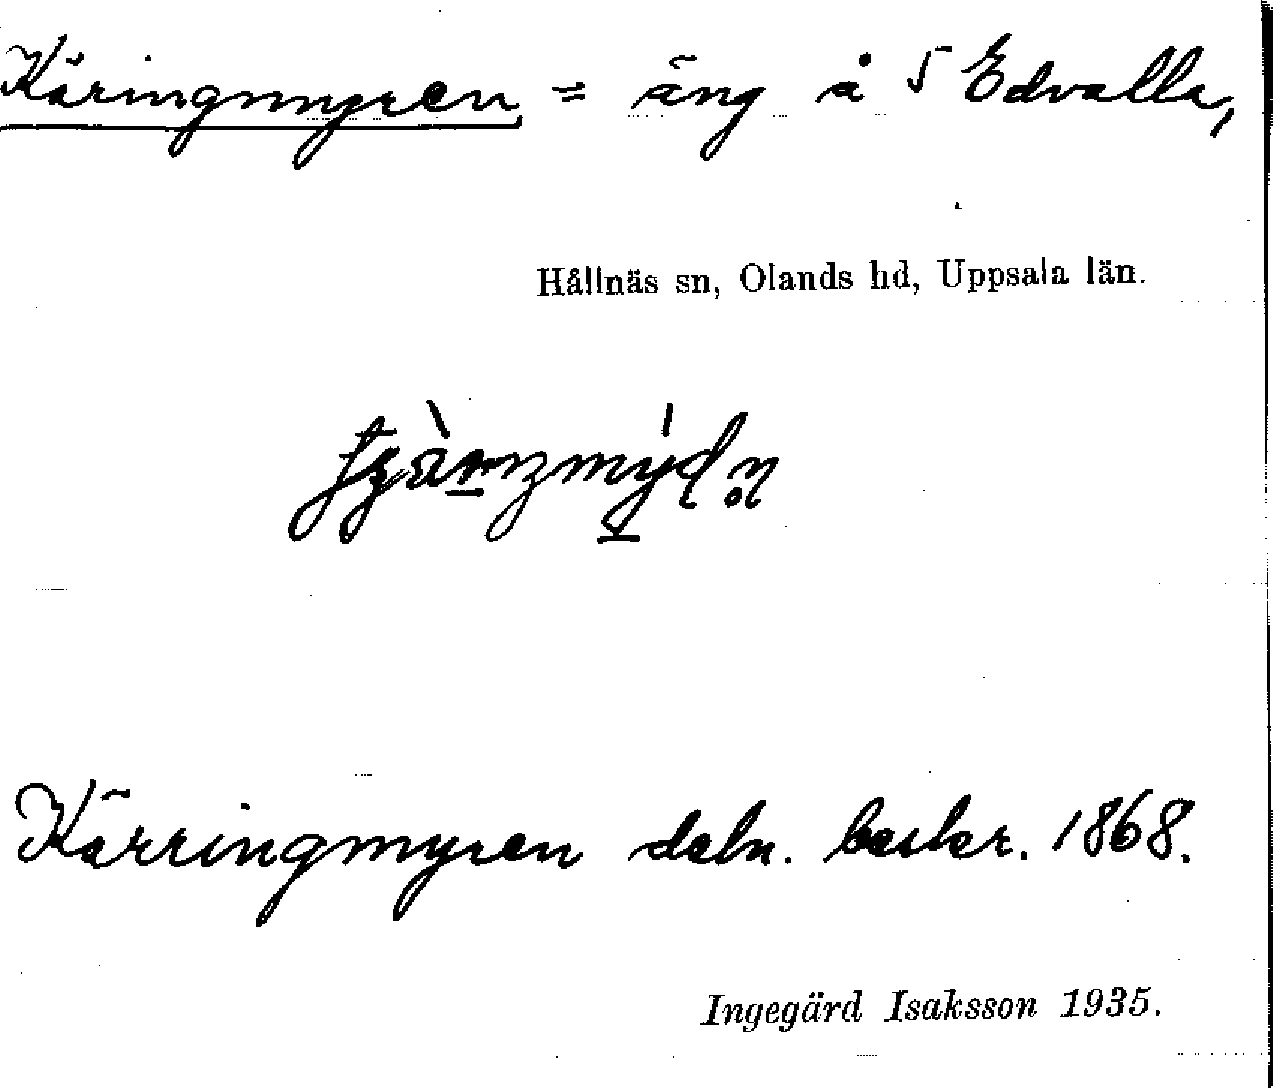 Käringmyren = äng å √ Edvalla,
Hållnäs sn, Olands hd, Uppsala län.
Kärringmyren deln. beskr. 1868.
Ingegärd Isaksson 1935.